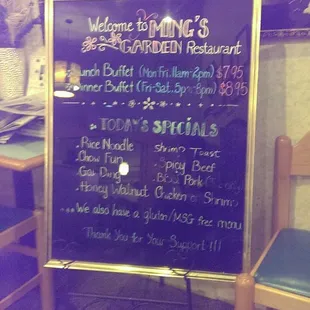 Welcome to MING'S
GARDEN Restaurant
Lunch Buffet (Mon-Fri. 11am-2pm) $7.95
Dinner Buffet (Fri-Sat. 5pm-8pm) $8.95
TODAY'S SPECIALS
Rice Noodle Shrimp Toast
Chow Fun Spicy Beef
Gai Ding BBQ Pork
Honey Walnut Chicken or Shrimp
...We also have a gluten/MSG free menu
Thank You for Your Support !!!